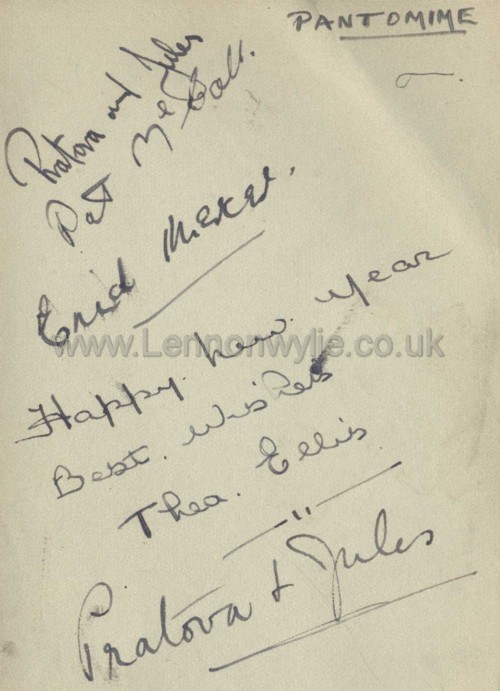 PANTOMIME
Pratova and Jules
Pat McCall.
Enid
www.Lennonwylie.co.uk
Happy. New. Year
Best. Wishes
Thea. Ellis
"
Pratova & Jules